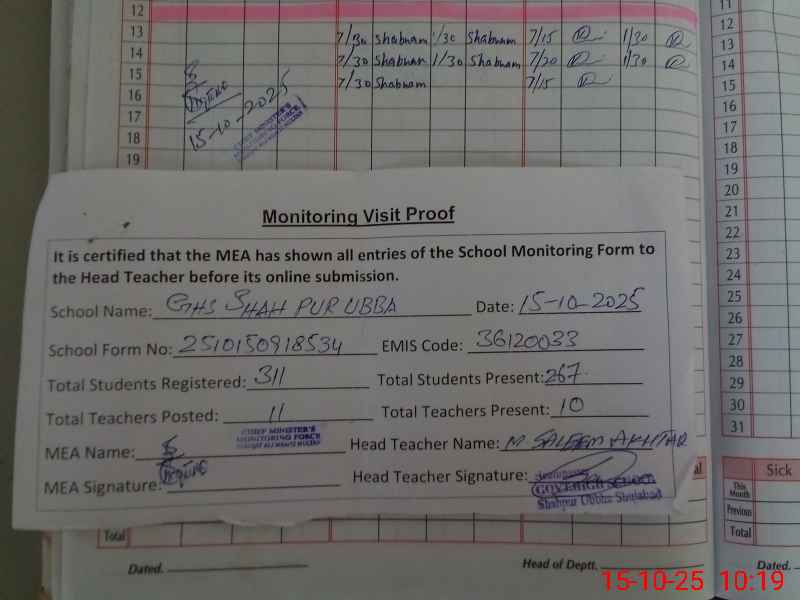 12
13 7/30 Shabnam 1/30 Shabnam 7/15 1/30
14 7/30 Shabnam 1/30 Shabnam 7/20 1/30
15 7/30 Shabnam 7/15
16
17
18
19
15-10-2025
CHIEF MINISTER'S
MONITORING FORCE
Monitoring Visit Proof
It is certified that the MEA has shown all entries of the School Monitoring Form to
the Head Teacher before its online submission.
School Name: GHS SHAH PUR UBBA Date: 15-10-2025
School Form No: 2510150918534 EMIS Code: 36120033
Total Students Registered: 311 Total Students Present: 267
Total Teachers Posted: 11 Total Teachers Present: 10
CHIEF MINISTER'S
MONITORING FORCE
MEA Name: Head Teacher Name: M SALEEM AKHTAR
MEA Signature: Head Teacher Signature:
GOVT. HIGH SCHOOL
Shahpur Ubbha Shujabad
Total
Dated. Head of Deptt.
11
12
13
14
15
16
17
18
19
20
21
22
23
24
25
26
27
28
29
30
31
Sick
This Month
Previous
Total
Dated.
15-10-25 10:19